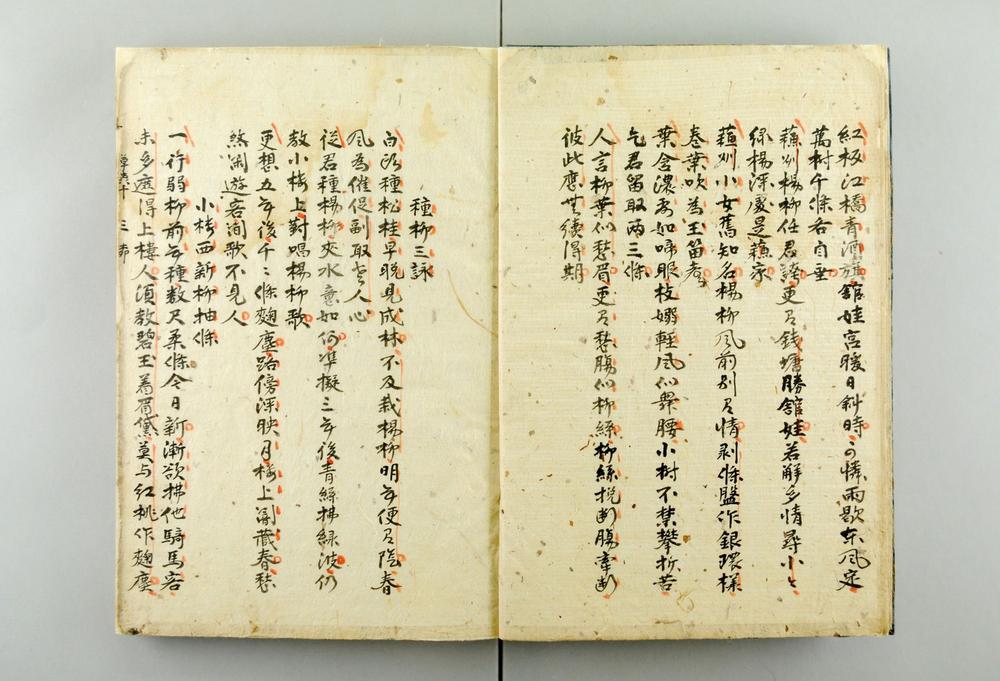 紅板江橋青酒旗舘娃宮暖日斜時可憐雨歇東風定
萬樹千條各自垂
蘇州楊柳任君誇更有錢塘勝舘娃若解多情尋小々
綠楊深處是蘇家
蘇州小女舊知名楊柳風前別有情剥條盤作銀環様
巻葉吹為玉笛声
葉含濃露如啼眼枝嫋軽風似舞腰小树不禁攀折苦
乞君留取两三條
人言柳葉似愁眉更有愁腸似柳絲柳絲挽断腸牽断
彼此應無續得期
種柳三詠
白頭種松桂早晚見成林不及栽楊柳明年便有陰春
風為催促副取老人心
從君種楊柳夾水意如何准擬三年後青絲拂綠波仍
教小楼上對唱楊柳歌
更想五年後千々條麹塵路傍深映月楼上闇蔵春愁
煞閑遊客聞歌不見人
小楼西新柳抽條
一行弱柳前年種数尺柔條今日新漸欲拂他騎馬客
未多遮得上樓人須教碧玉羞眉黛莫与紅桃作麹塵